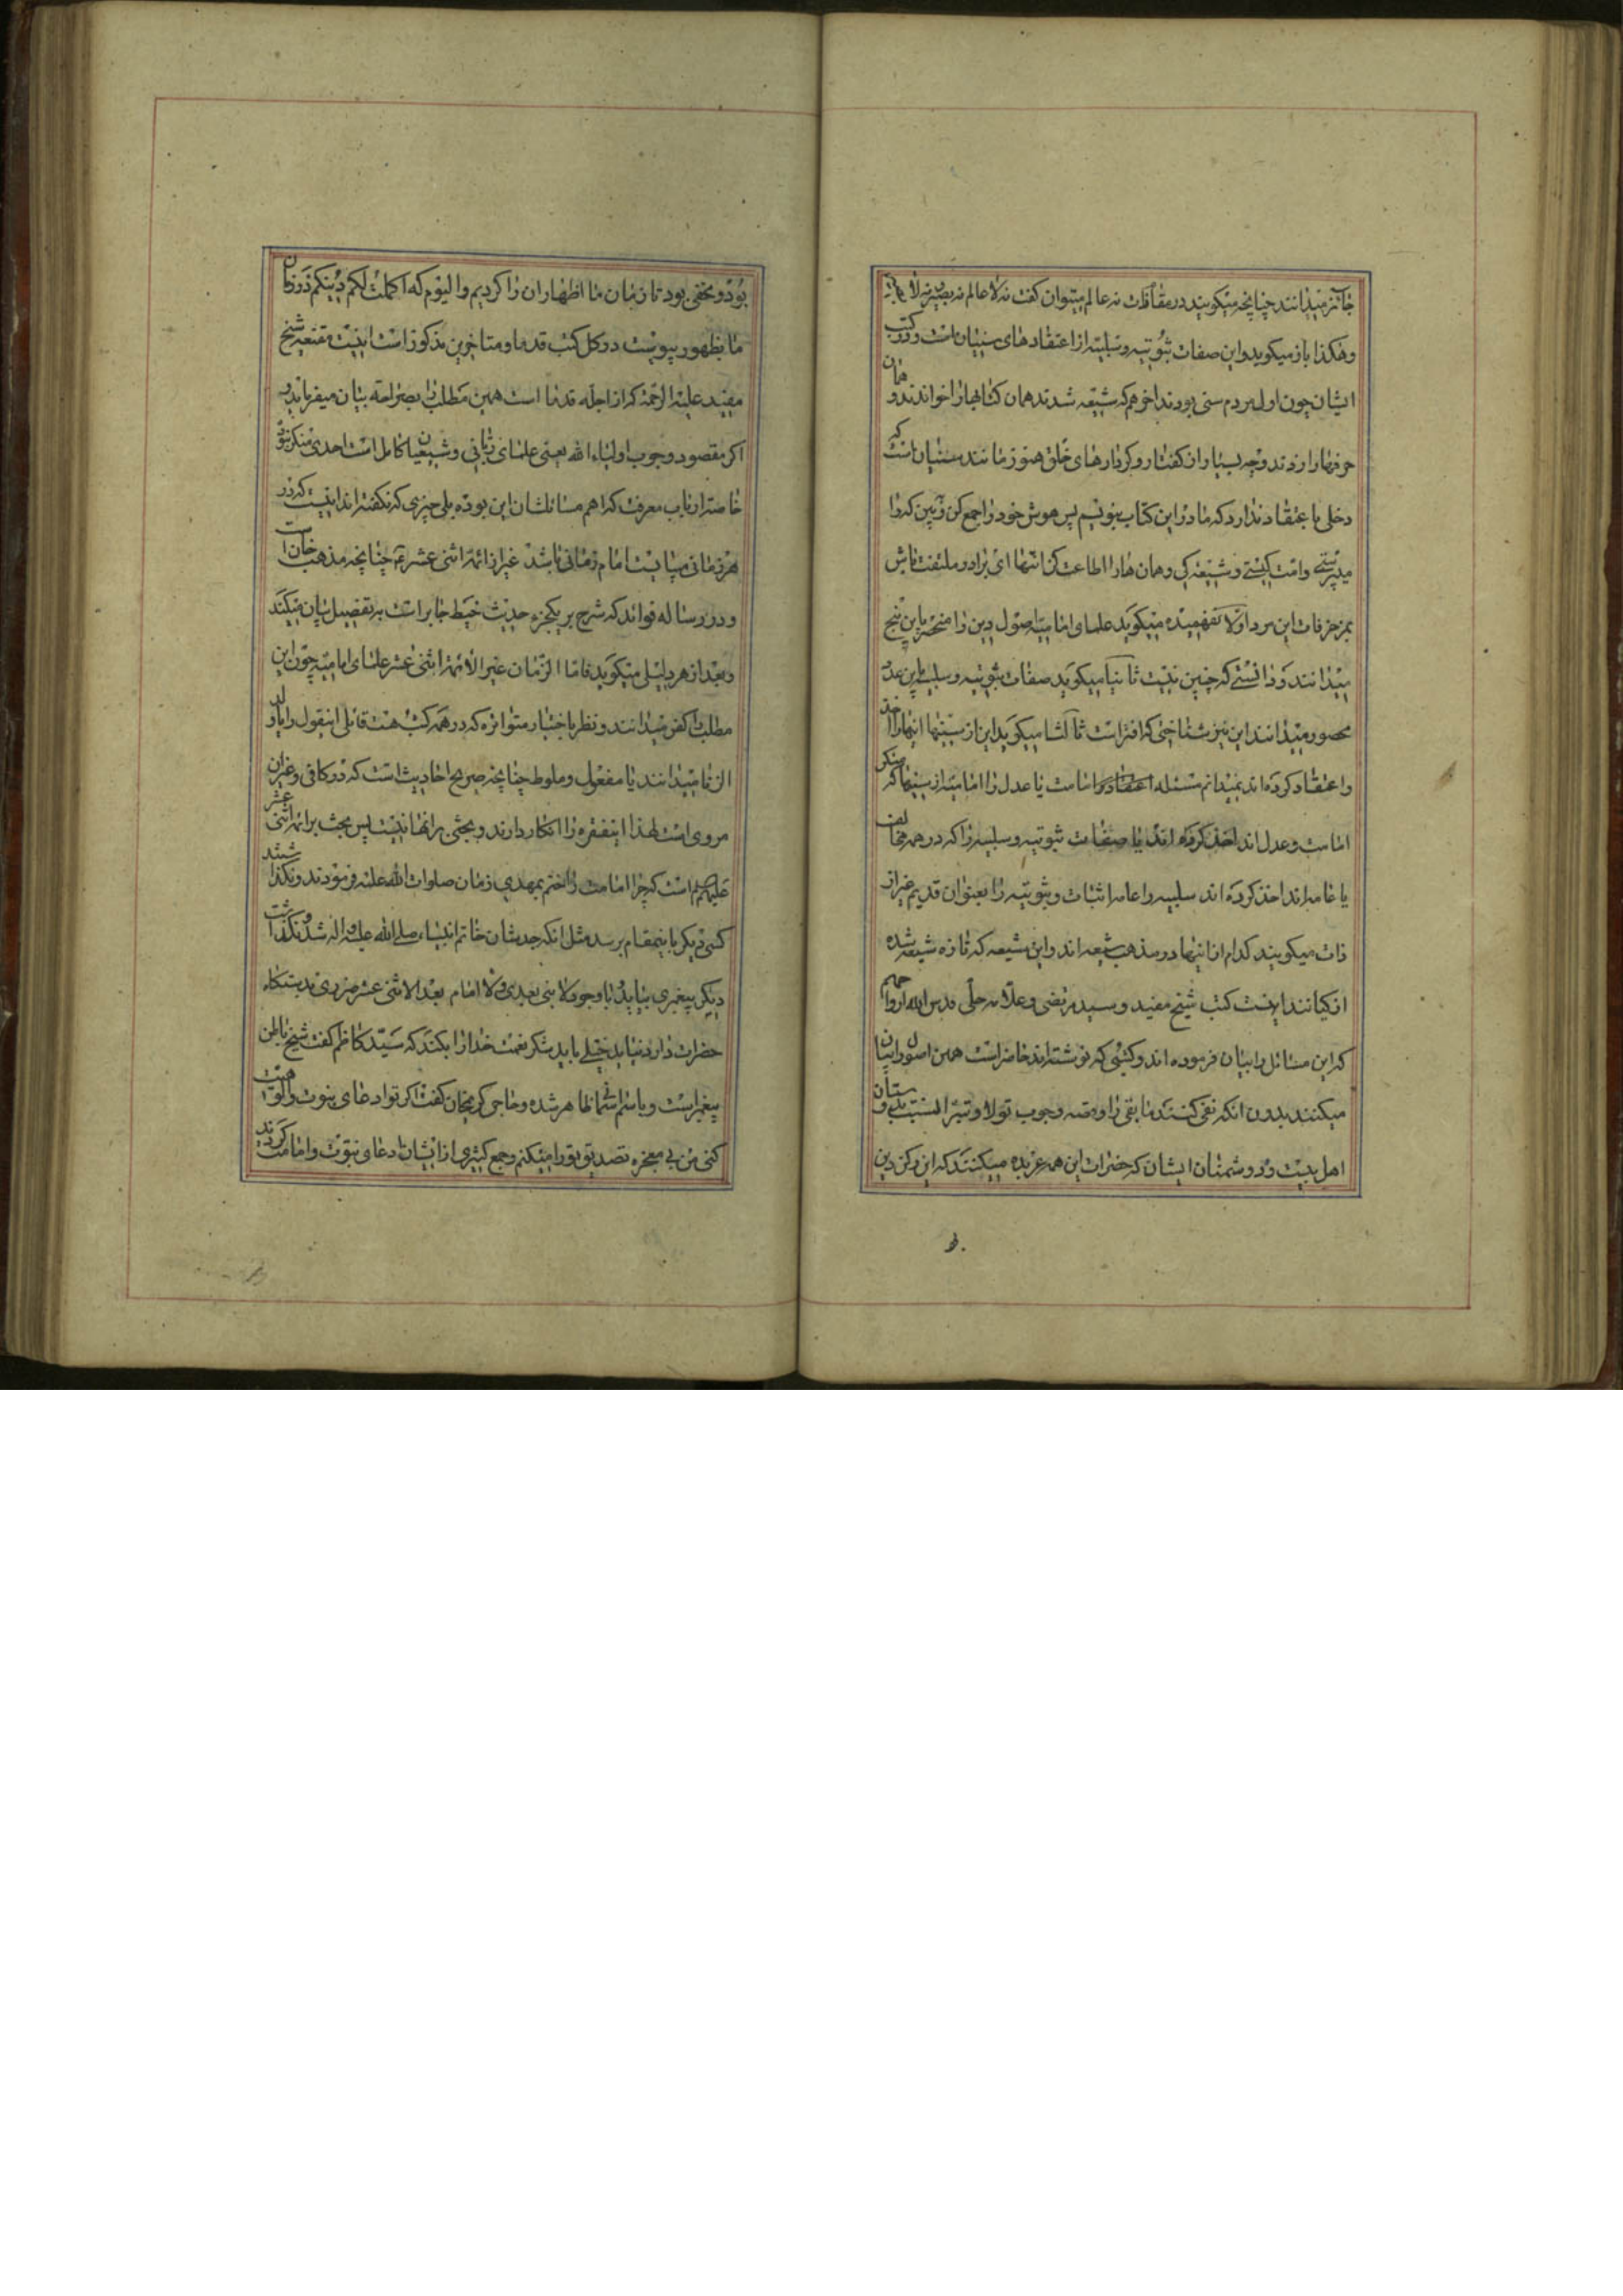 جائز میدانند چنانچه میکویند در مقامات نه عالم میتوان کفت نه لا عالم نه بصیر نه لا
وهکذا باز میکوید واین صفات ثبوتیه وسلبیه از اعتقادهای سنیان است ودر کتب
ایشان چون اول مردم سنی بودند اخر هم که شیعه شدند همان کتابها را خواندند و همان
حرفها را زدند وچه بسیار از کفتار وکردارهای خلق هنوز مانند سنیان است که
دخلی باعتقاد ندارد که ما در این کتاب بنویسیم پس هوش خود را جمع کن وببین که را
میپرستی وامت کیستی وشیعه کی وهمان ها را اطاعت کن انتها ای برادر ملتفت باش
بمزخرفات این مرد اولا نفهمیده میکوید علمای امامیه اصول دین را منحصر باین پنج
میدانند ودانستی که چنین نیست ثانیا میکوید صفات ثبوتیه وسلبیه باین عدد
محصور میدانند این نیز شناختی که افتراست ثالثا میکوید این از سنیها اینها را اخذ
واعتقاد کرده اند نمیدانم مسئله امامت یا عدل را امامیه از سنیها که منکر
امامت وعدل اند اخذ کرده اند یا صفات ثبوتیه وسلبیه را که در همه مخالف
با عامه اند اخذ کرده اند سلبیه را عامه اثبات وثبوتیه را بعنوان قدیم غیر از
ذات میکویند کدام از اینها در مذهب شیعه اند واین شیعه که تازه شیعه شده
از کیانند اینست کتب شیخ مفید وسید مرتضی وعلامه حلی قدس الله ارواحهم
که این مسائل را بیان فرموده اند وکتبی که نوشته اند حاضر است همین اصول را بیان
میکنند بدون انکه نفی کنند مابقی را ومسئله وجوب تولا وتبرا نسبت بدوستان
اهل بیت ودر دشمنان ایشان که حضرات این همه عربده میکنند که این رکن دین
بود ومخفی بود تا زمان ما اظهار ان را کردیم والیوم که اکملت لکم دینکم در زمان
ما بظهور پیوست در کل کتب قدما ومتاخرین مذکور است اینست مقنعه شیخ
مفید علیه الرحمة که از اجله قدما است همین مطلب را بصراحته بیان میفرماید و
اکر مقصود وجوب اولیاء الله یعنی علمای ربانی وشیعیان کامل است احدی منکر نبود
خاصه ارباب معرفت که اهم مسائلشان این بوده بلی چیزی که نکفته اند اینست که در
هر زمانی میبایست امام زمانی باشد غیر از ائمه اثنی عشر چنانچه مذهب خان است
ودر رساله فوائد که شرح بر یکجزء حدیث خیط جابر است به تفصیل بیان میکند
وبعد از هر دلیلی میکوید فاما الزمان غیر الائمة اثنی عشر علمای امامیه چون این
مطلب را کفر میدانند ونظر باخبار متواتره که در همه کتب هست قائل اینقول را یا ولد
الزنا میدانند یا مفعول وملوط چنانچه صریح احادیث است که در کافی وغیر ان
مروی است لهذا اینفقره را انکار دارند وبحثی برانها نیست پس بحث بر ائمه اثنی عشر
علیهم است که چرا امامت را ختم بمهدی زمان صلوات الله علیه فرمودند ونکذاشتند
کسی دیکر باینمقام برسد مثل انکه جدشان خاتم انبیاء صلی الله علیه واله شد ونکذاشت
دیکر پیغمبری بیاید با وجود لا نبی بعدی ولا امام بعد الاثنی عشر ضرری بدستکاه
حضرات دارد نباید خیلی باید شکر نعمت خدا را بکند که سید کاظم کفت شیخ باطن
پیغمبر است وباسم اسمانها هر شده وحاجی کریمخان کفت اکر تو ادعای بنوت والوهیت
کنی من بی معجزه تصدیق تو را میکنم وجمع کثیری از ایشان ادعای نبوت وامامت کردند